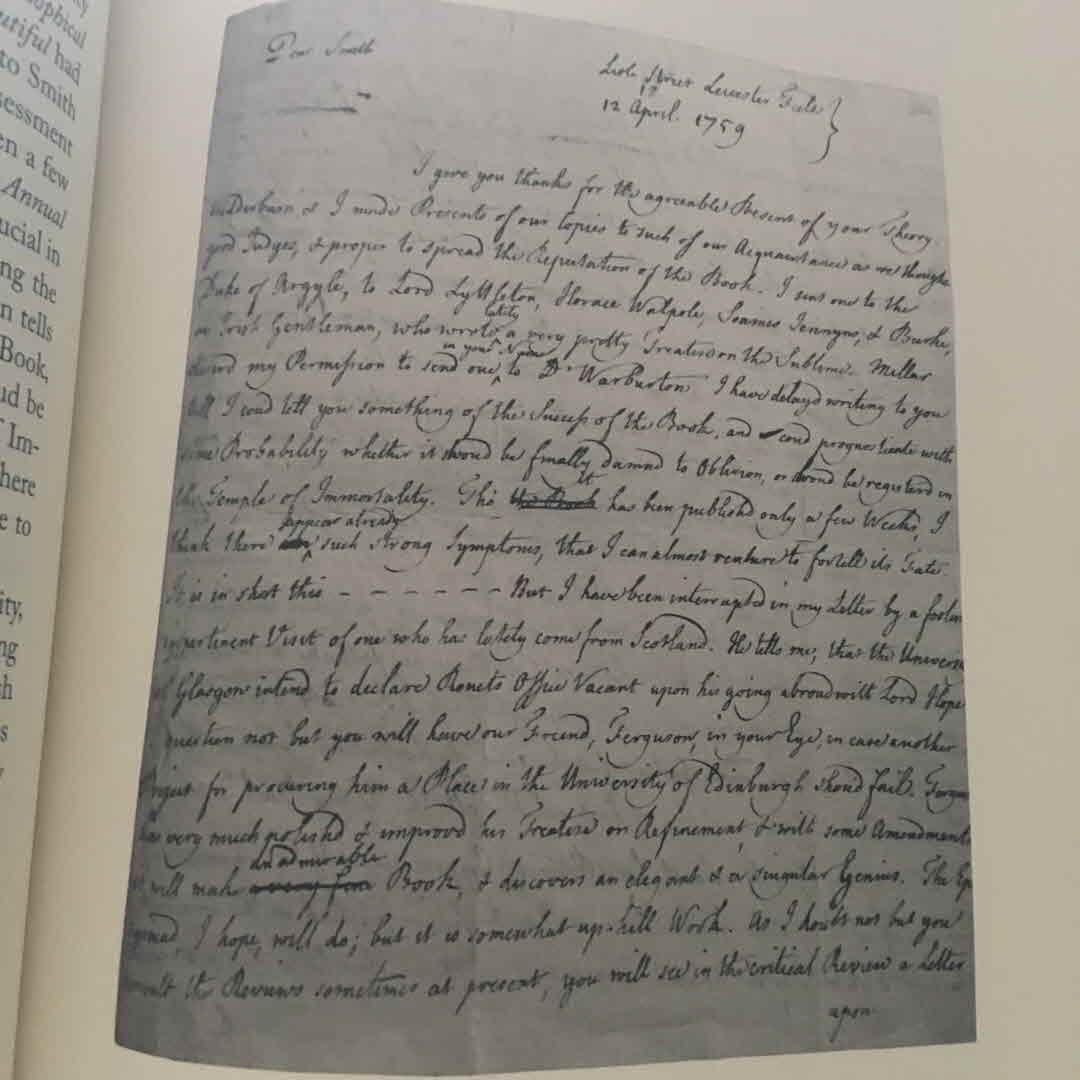 ophical
utiful had
to Smith
sessment
en a few
Annual
ucial in
ng the
n tells
Book,
ud be
f Im-
here
e to
ity,
ng
ch
s
Dear Smith
Lisle Street Leicester Fields
12 April. 1759
I give you thanks for the agreeable Present of your Theory.
Wedderburn & I made Presents of our Copies to such of our Acquaintance as we thought
good Judges, & proper to spread the Reputation of the Book. I sent one to the
Duke of Argyle, to Lord Lyttleton, Horace Walpole, Soames Jennyns, & Burke,
an Irish Gentleman, who wrote lately a very pretty Treatise on the Sublime. Millar
desird my Permission to send one in your Name to Dr Warburton. I have delayd writing to you
till I coud tell you something of the Success of the Book, and coud prognosticate with
some Probability whether it shoud be finally damnd to Oblivion, or shoud be registerd in
the Temple of Immortality. Tho' the Book it has been publishd only a few Weeks, I
think there appear already such strong Symptoms, that I can almost venture to foretell its Fate.
It is in short this – – – – – – – But I have been interrupted in my Letter by a foolish
impertinent Visit of one who has lately come from Scotland. He tells me, that the Universi
of Glasgow intend to declare Rouets Office Vacant upon his going abroad with Lord Hope
question not but you will have our Friend, Ferguson, in your Eye, in case another
Project for procuring him a Place in the University of Edinburgh shoud fail. Fergus
has very much polishd & improvd his Treatise on Refinement, & with some Amendments
it will make a very fine an admirable Book, & discovers an elegant & a singular Genius. The Ep
igoniad, I hope, will do; but it is somewhat up-hill Work. As I doubt not but you
consult the Reviews sometimes at present, you will see in the critical Review a Letter
upon